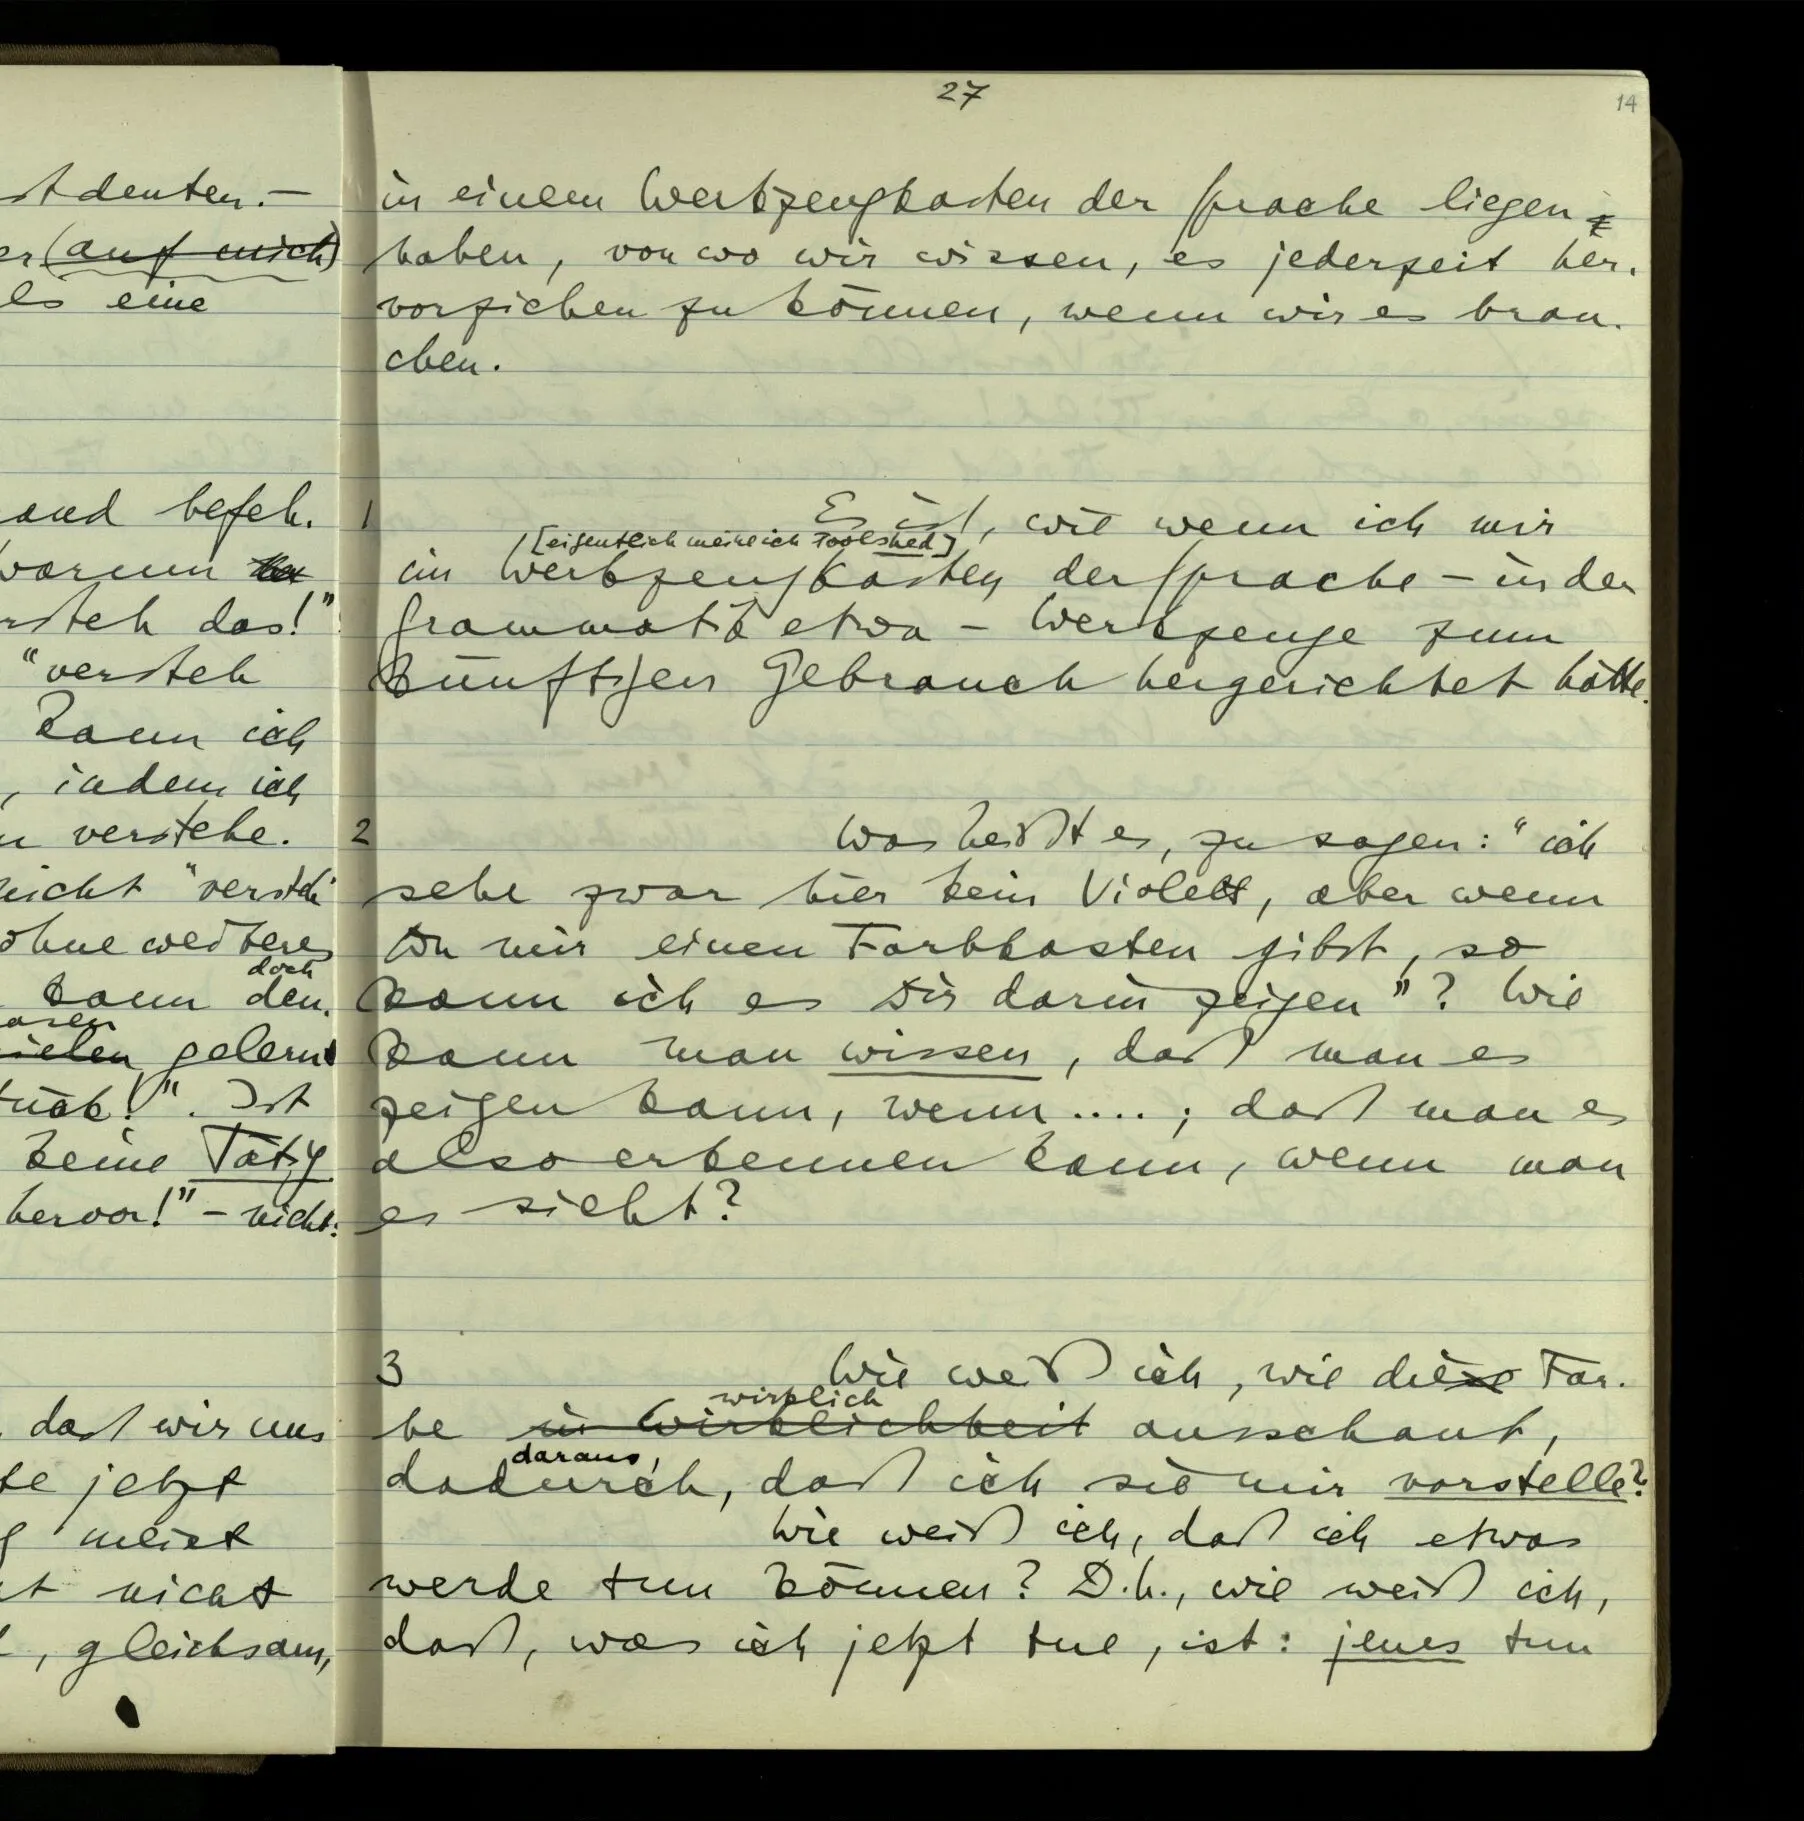 st deuten. –
er (auf mich)
als eine
and befeh-
warum
versteh das!"
"versteh
kann ich
, indem ich
verstehe.
nicht "versteh
ohne weiteres
doch
kann den-
gelernt
zurück!". Ist
keine Tätig
hervor!" – nicht:
, daß wir uns
jetzt
meist
nicht
, gleichsam,
27
14
in einem Werkzeugkasten der Sprache liegen
haben, von wo wir wissen, es jederzeit her-
vorziehen zu können, wenn wir es brau-
chen.
1 Es ist, wie wenn ich mir
[eigentlich meine ich Toolshed]
im Werkzeugkasten der Sprache – in der
Grammatik etwa – Werkzeuge zum
künftigen Gebrauch hergerichtet hätte.
2 Was heißt es, zu sagen: "ich
sehe zwar hier kein Violett, aber wenn
Du mir einen Farbkasten gibst, so
kann ich es Dir darin zeigen"? Wie
kann man wissen, daß man es
zeigen kann, wenn ....; daß man es
also erkennen kann, wenn man
es sieht?
3 Wie weiß ich, wie diese Far-
wirklich
be in Wirklichkeit ausschaut,
daraus,
dadurch, daß ich sie mir vorstelle?
Wie weiß ich, daß ich etwas
werde tun können? D.h., wie weiß ich,
daß, was ich jetzt tue, ist: jenes tun